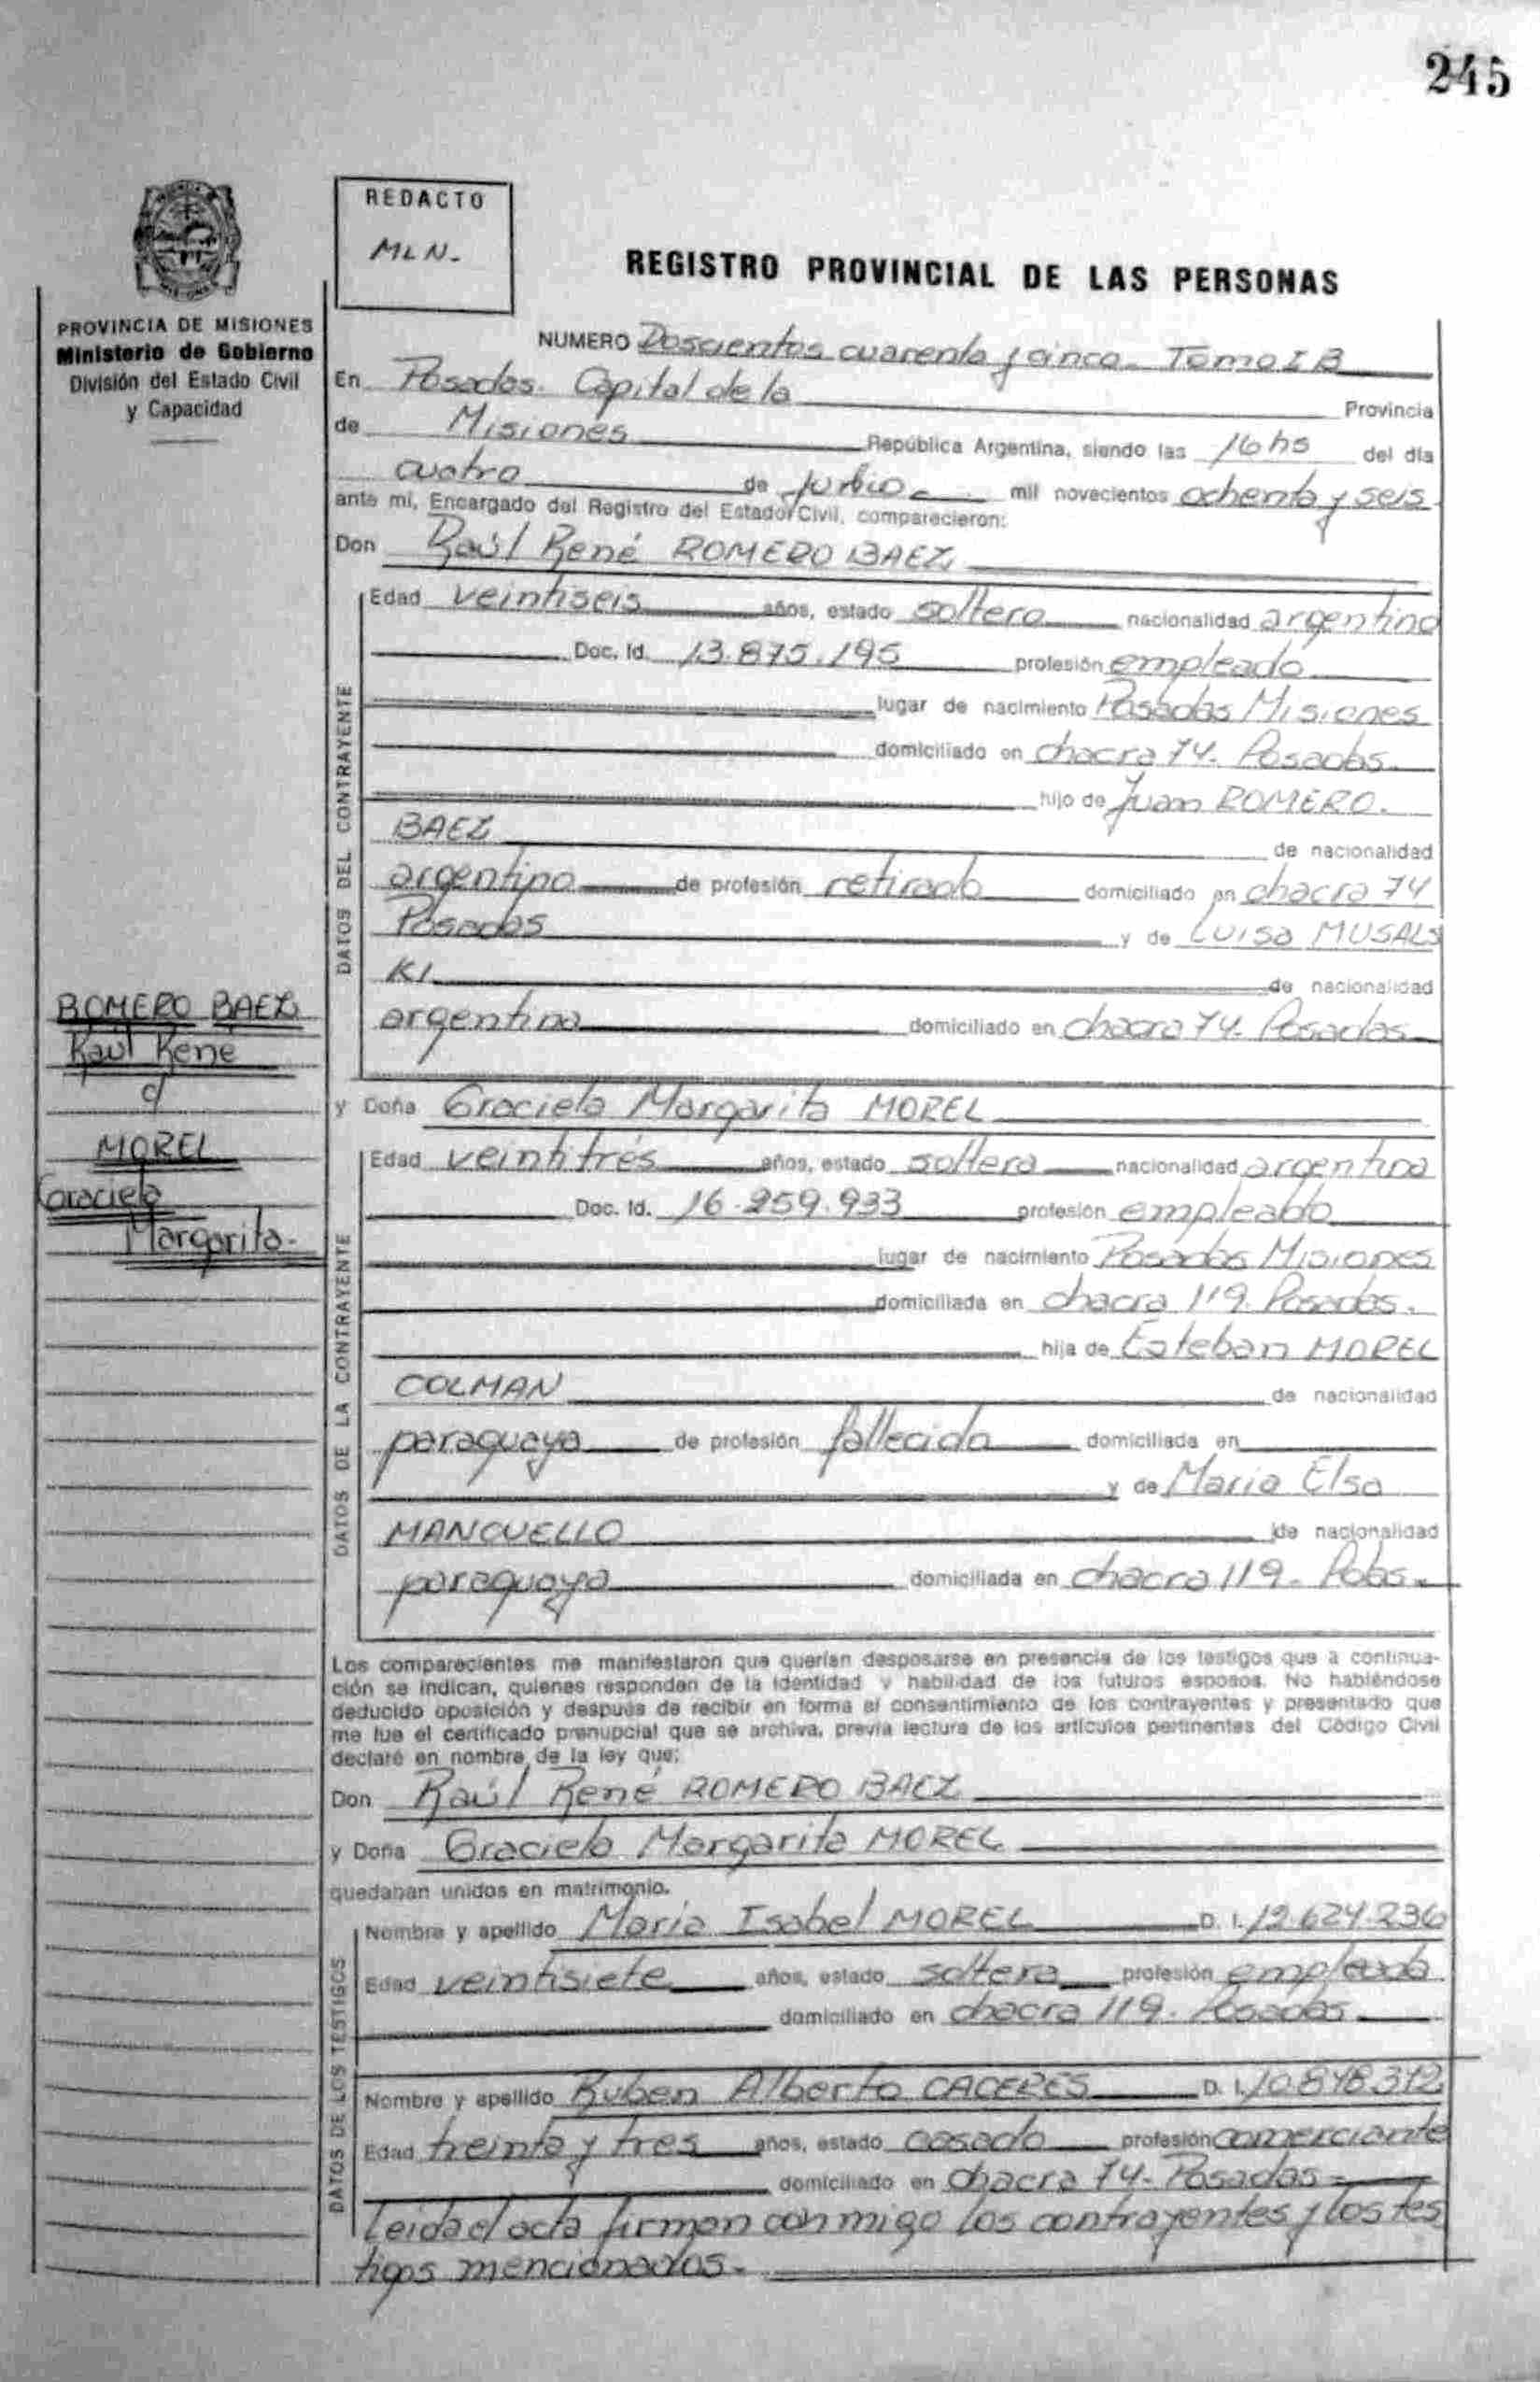 245
REDACTO
MLN-
REGISTRO PROVINCIAL DE LAS PERSONAS
PROVINCIA DE MISIONES
Ministerio de Gobierno
División del Estado Civil
y Capacidad
NUMERO Doscientos cuarenta y cinco - Tomo I B
En Posadas. Capital de la Provincia
de Misiones República Argentina, siendo las 16 hs del día
cuatro de mil novecientos ochenta y seis
ante mí, Encargado del Registro del Estado Civil, comparecieron:
Don Raúl René ROMERO BAEZ
Edad veintiseis años, estado soltero nacionalidad argentino
Doc. Id. 13.875.195 profesión empleado
lugar de nacimiento Posadas Misiones
domiciliado en chacra 74. Posadas.
hijo de Juan ROMERO.
BAEZ de nacionalidad
argentino de profesión retirado domiciliado en chacra 74
Posadas y de Luisa MUSALS
KI de nacionalidad
argentina domiciliado en chacra 74. Posadas
DATOS DEL CONTRAYENTE
ROMERO BAEZ
Raúl René
c/
MOREL
Graciela
Margarita-
y Doña Graciela Margarita MOREL
Edad veintitrés años, estado soltera nacionalidad argentina
Doc. Id. 16.259.933 profesión empleado
lugar de nacimiento Posadas Misiones
domiciliada en chacra 119. Posadas.
hija de Esteban MOREL
COLMAN de nacionalidad
paraguaya de profesión fallecido domiciliada en
y de Maria Elsa
MANCUELLO de nacionalidad
paraguaya domiciliada en chacra 119. Pdas.
DATOS DE LA CONTRAYENTE
Los comparecientes me manifestaron que querían desposarse en presencia de los testigos que a continua-
ción se indican, quienes responden de la identidad y habilidad de los futuros esposos. No habiéndose
deducido oposición y después de recibir en forma el consentimiento de los contrayentes y presentado que
me fue el certificado prenupcial que se archiva, previa lectura de los artículos pertinentes del Código Civil
declaré en nombre de la ley que:
Don Raúl René ROMERO BAEZ
y Doña Graciela Margarita MOREL
quedaban unidos en matrimonio.
Nombre y apellido Maria Isabel MOREL D. I. 12.624.236
Edad veintisiete años, estado soltera profesión empleada
domiciliado en chacra 119. Posadas
Nombre y apellido Ruben Alberto CACERES D. I. 10.848.312
Edad treinta y tres años, estado casado profesión comerciante
domiciliado en chacra 74- Posadas
DATOS DE LOS TESTIGOS
Leida el acta firman conmigo los contrayentes y los tes
tigos mencionados.-